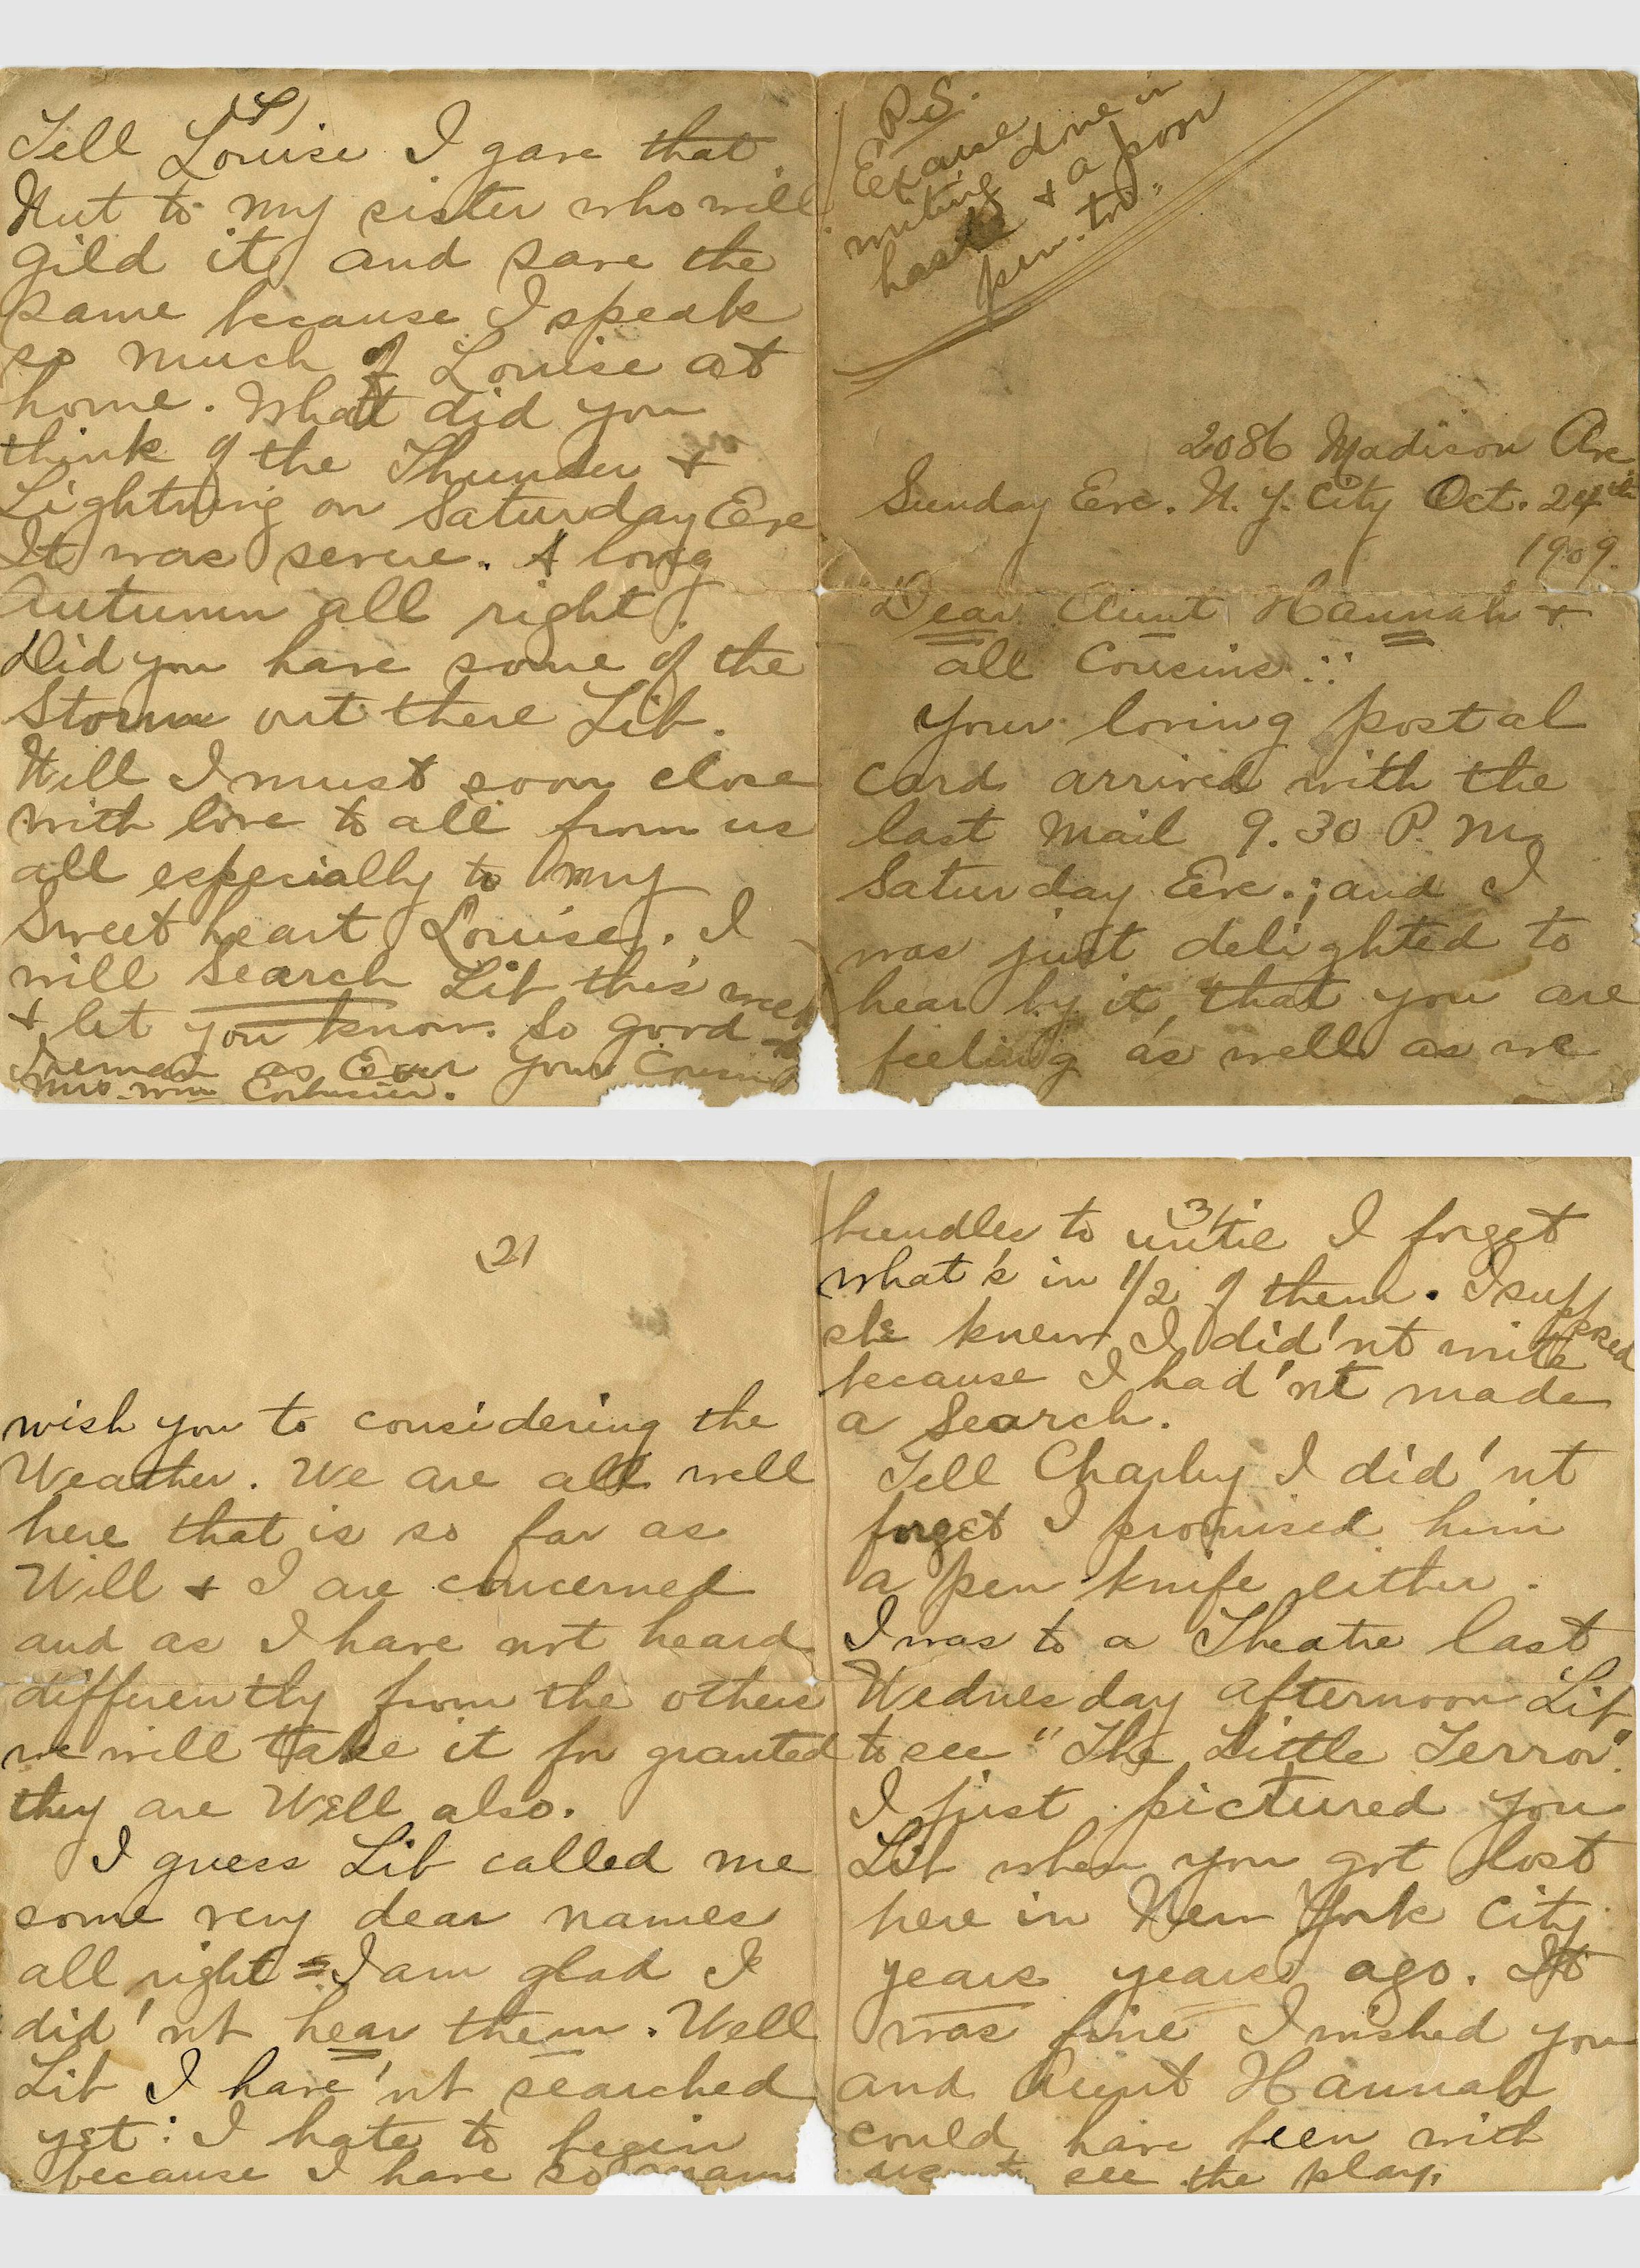 P.S.
Excuse
writing done in
haste & a poor
pen. too"
2086 Madison Ave
Sunday Eve. N. Y. City Oct. 24th
1909.
Dear Aunt Hannah &
all Cousins ::
Your loving postal
card arrived with the
last Mail 9.30 P. M.
Saturday Eve.; and I
was just delighted to
hear by it, that you are
feeling as well as we
(2)
wish you to considering the
Weather. We are all well
here that is so far as
Will & I are concerned
and as I have not heard
differently from the others
we will take it for granted
they are Well also.
I guess Lib called me
some very dear names
all right = I am glad I
did'nt hear them. Well
Lib I have'nt searched
yet: I hate to begin
because I have so many
(3)
bundles to until I forget
what's in 1/2 of them. I supposed
she knew I did'nt write
because I had'nt made
a Search.
Tell Charley I did'nt
forget I promised him
a pen knife either.
I was to a Theatre last
Wednesday afternoon Lib
to see "The Little Terror".
I just pictured you
Lib when you got lost
here in New York City
years years ago. It
was fine I wished you
and Aunt Hannah
could have been with
us to see the play.
(4)
Tell Louise I gave that
Nut to my sister who will
gild it and save the
same because I speak
so much of Louise at
home. What did you
think of the Thunder &
Lightning on Saturday Eve
It was severe. A long
Autumn all right.
Did you have some of the
Storm out there Lib.
Well I must soon close
with love to all from us
all especially to my
Sweet heart Louise. I
will Search Lib this week
& let you know. So good
I remain as Ever Your Cousin
Mrs. Wm